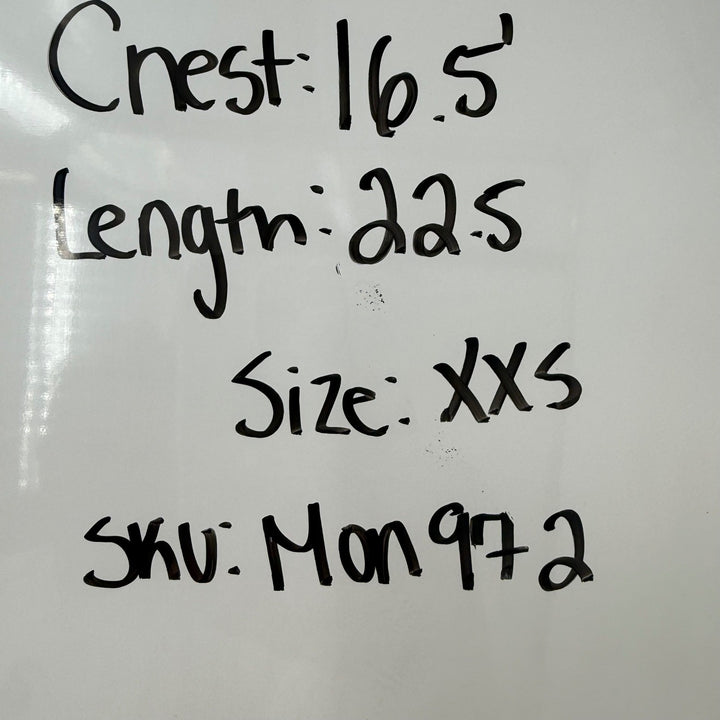 Chest: 16.5'
Length: 22.5
Size: XXS
SKU: Mon972